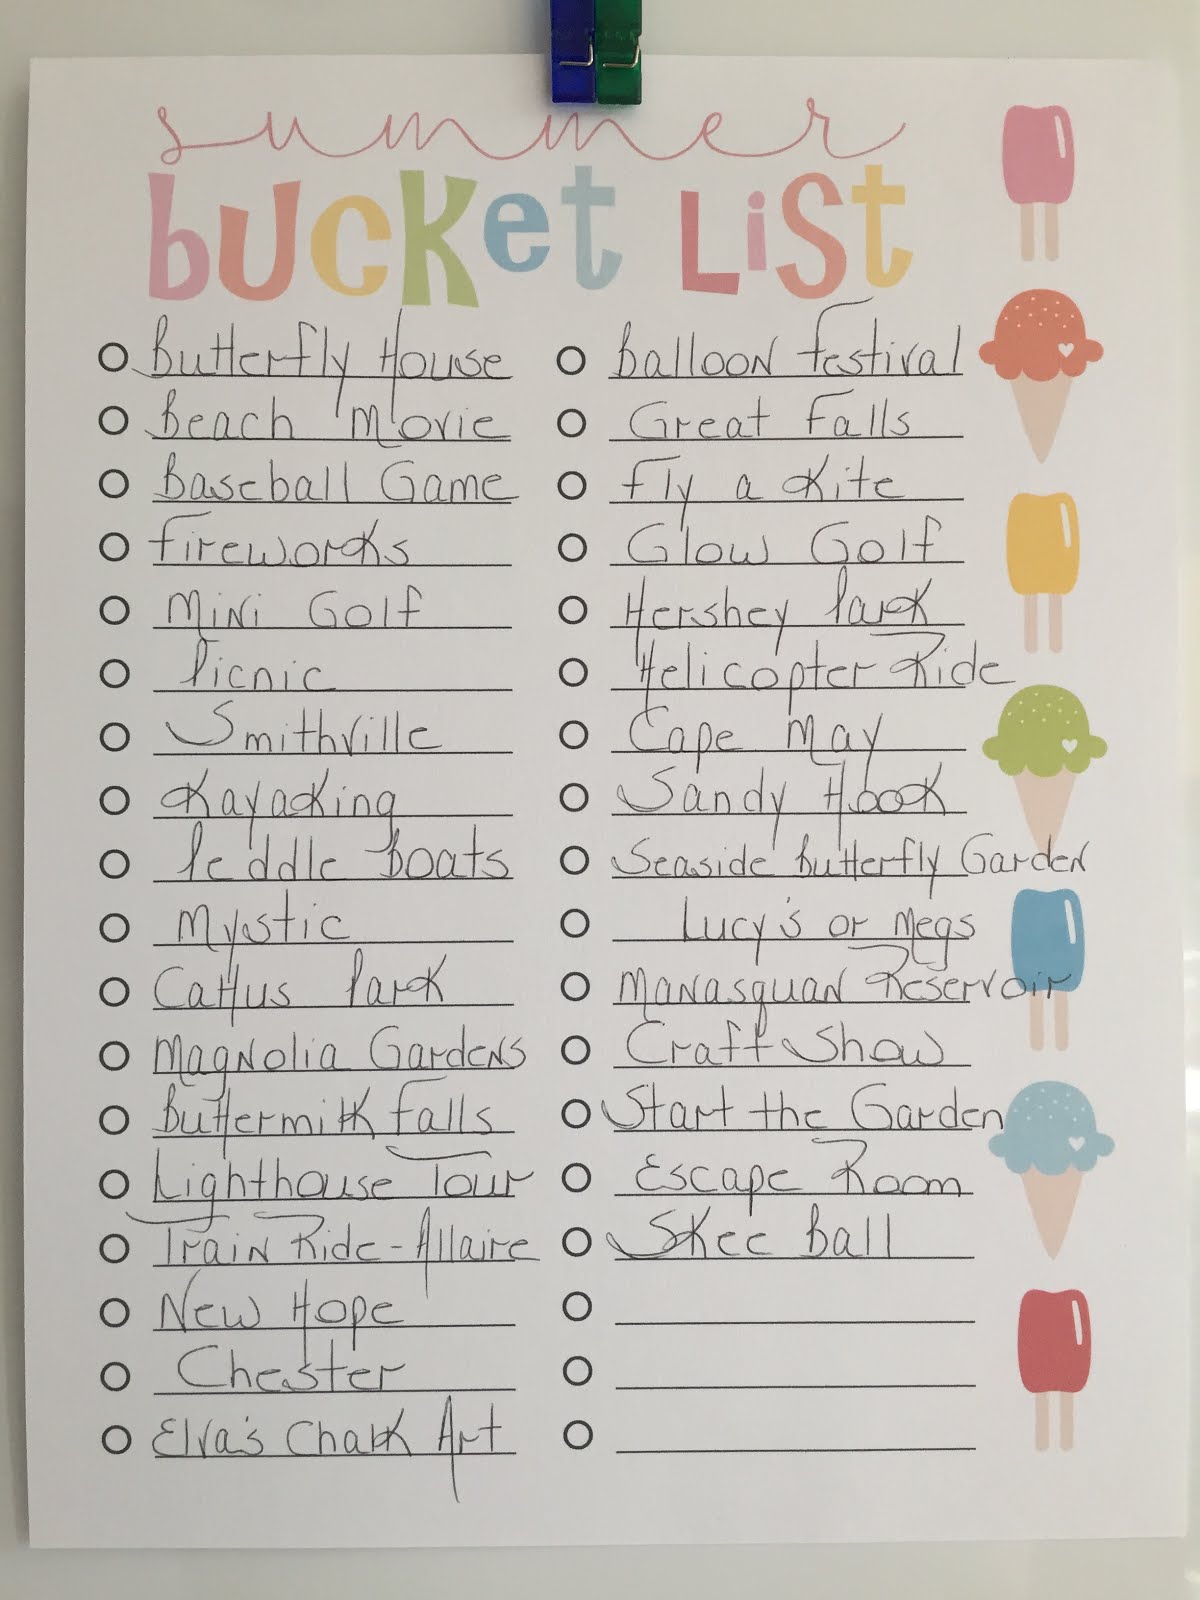 summer
bucket list
Butterfly House
Beach Movie
Baseball Game
Fireworks
Mini Golf
Picnic
Smithville
Kayaking
Peddle Boats
Mystic
Cattus Park
Magnolia Gardens
Buttermilk Falls
Lighthouse Tour
Train Ride-Allaire
New Hope
Chester
Elva's Chalk Art
Balloon Festival
Great Falls
Fly a Kite
Glow Golf
Hershey Park
Helicopter Ride
Cape May
Sandy Hook
Seaside Butterfly Garden
Lucy's or Megs
Manasquan Reservoir
Craft Show
Start the Garden
Escape Room
Skee Ball